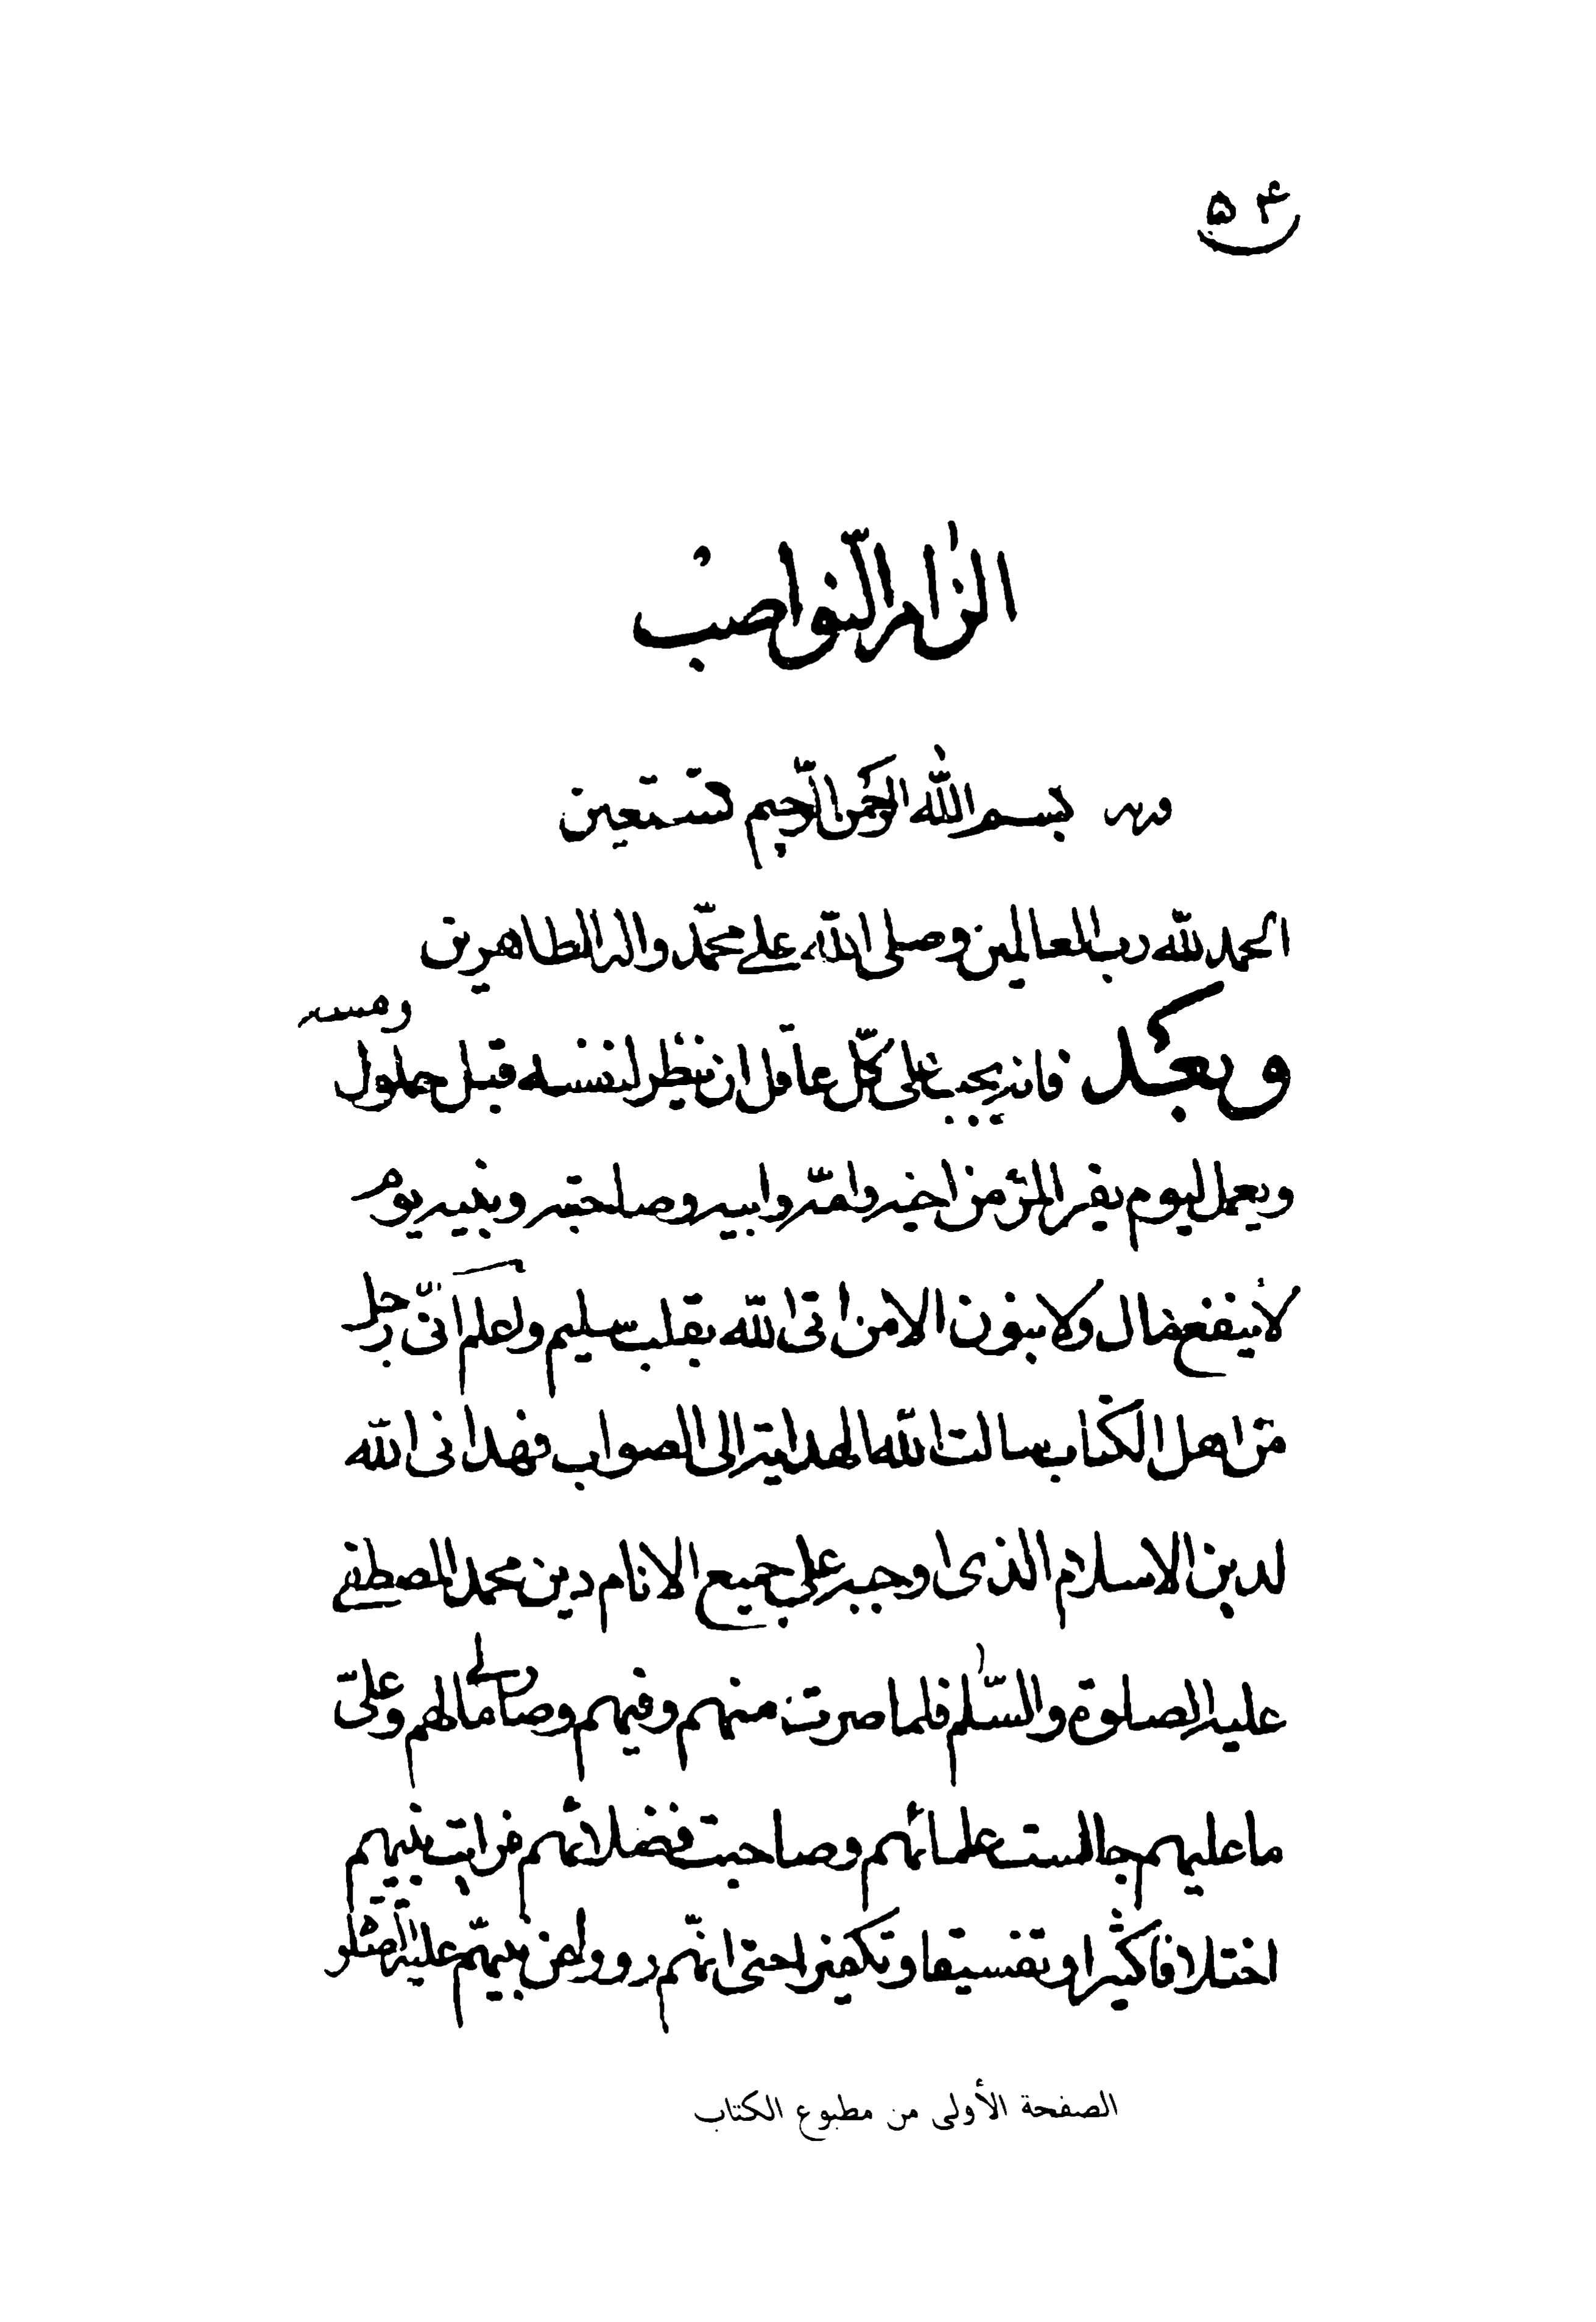 ۵۴
الزام النّواصبْ
وبه بسم الله الرّحمن الرّحيم نستعين
الحمد لله رب العالمين وصلى الله على محمّد واله الطاهرين
وبعد فانه يجب على كلّ عاقل ان ينظر لنفسه قبل حلول رمسه
ويعمل ليوم يفر المرء من اخيه وامّه وابيه وصاحبته وبنيه يوم
لا ينفع مال ولا بنون الا من اتى الله بقلب سليم واعلم انّى رجل
من اهل الكتاب سالت الله الهداية الى الصواب فهدانى الله
لدين الاسلام الذى اوجبه على جميع الانام دين محمد المصطفى
عليه الصلوة والسّلم فلما صرت منهم وفيهم وصار لى ما لهم وعلىّ
ما عليهم جالست علمائهم وصاحبت فضلائهم فرايت بينهم
اختلافا كثيرا وتفسيقا وتكفيرا حتى انّهم رووا عن نبيهّم عليه الصّلو
الصفحة الأولى من مطبوع الكتاب